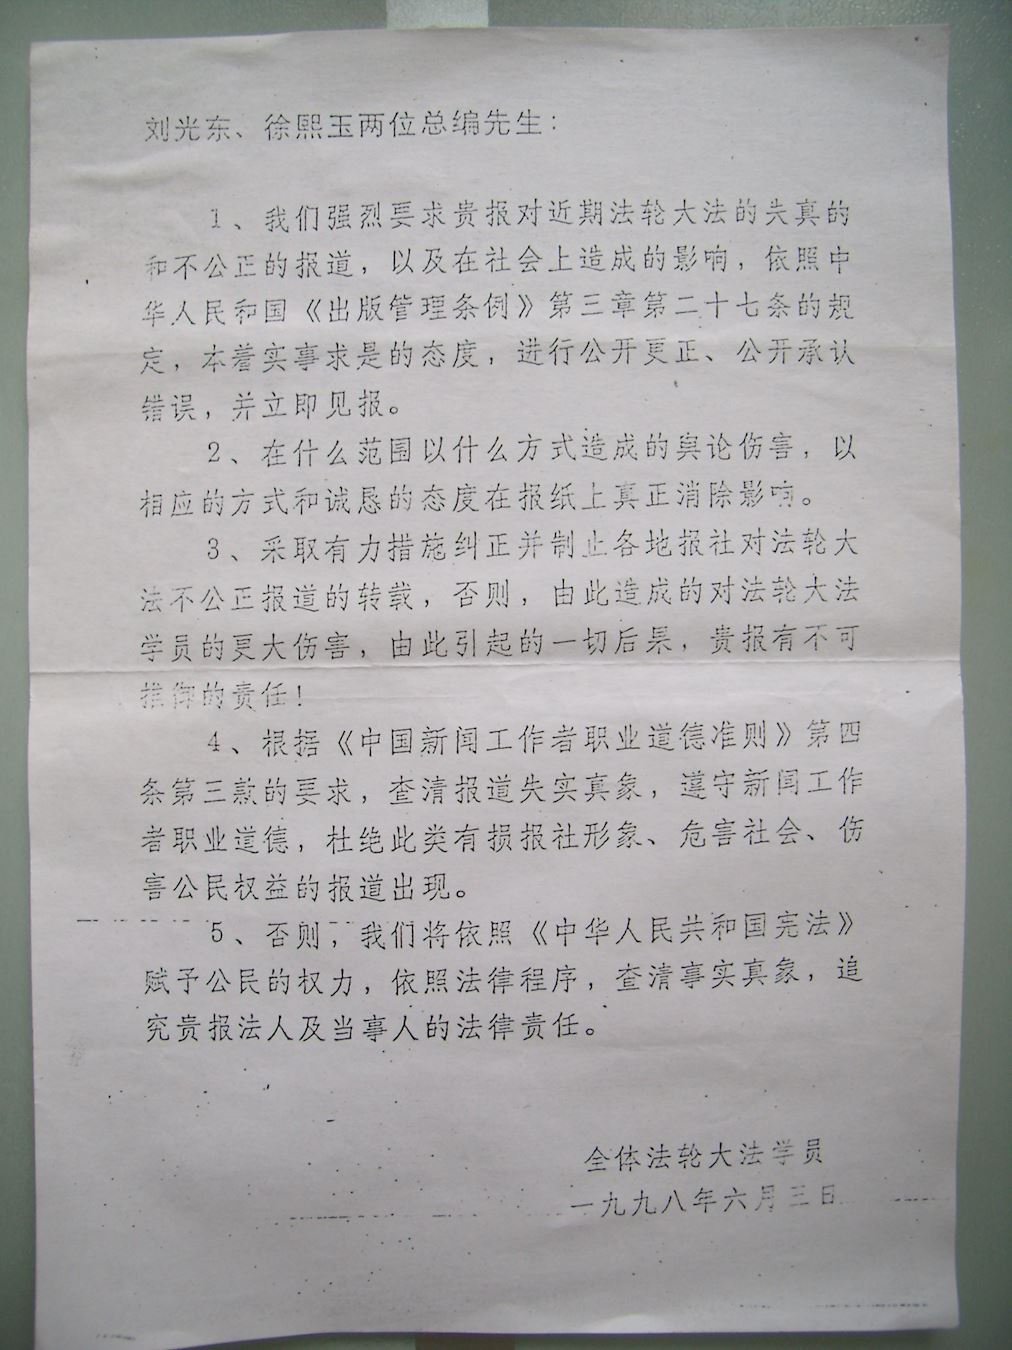 刘光东、徐熙玉两位总编先生：
1、我们强烈要求贵报对近期法轮大法的失真的
和不公正的报道，以及在社会上造成的影响，依照中
华人民和国《出版管理条例》第三章第二十七条的规
定，本着实事求是的态度，进行公开更正、公开承认
错误，并立即见报。
2、在什么范围以什么方式造成的舆论伤害，以
相应的方式和诚恳的态度在报纸上真正消除影响。
3、采取有力措施纠正并制止各地报社对法轮大
法不公正报道的转载，否则，由此造成的对法轮大法
学员的更大伤害，由此引起的一切后果，贵报有不可
推卸的责任！
4、根据《中国新闻工作者职业道德准则》第四
条第三款的要求，查清报道失实真象，遵守新闻工作
者职业道德，杜绝此类有损报社形象、危害社会、伤
害公民权益的报道出现。
5、否则，我们将依照《中华人民共和国宪法》
赋予公民的权力，依照法律程序，查清事实真象，追
究贵报法人及当事人的法律责任。
全体法轮大法学员
一九九八年六月三日